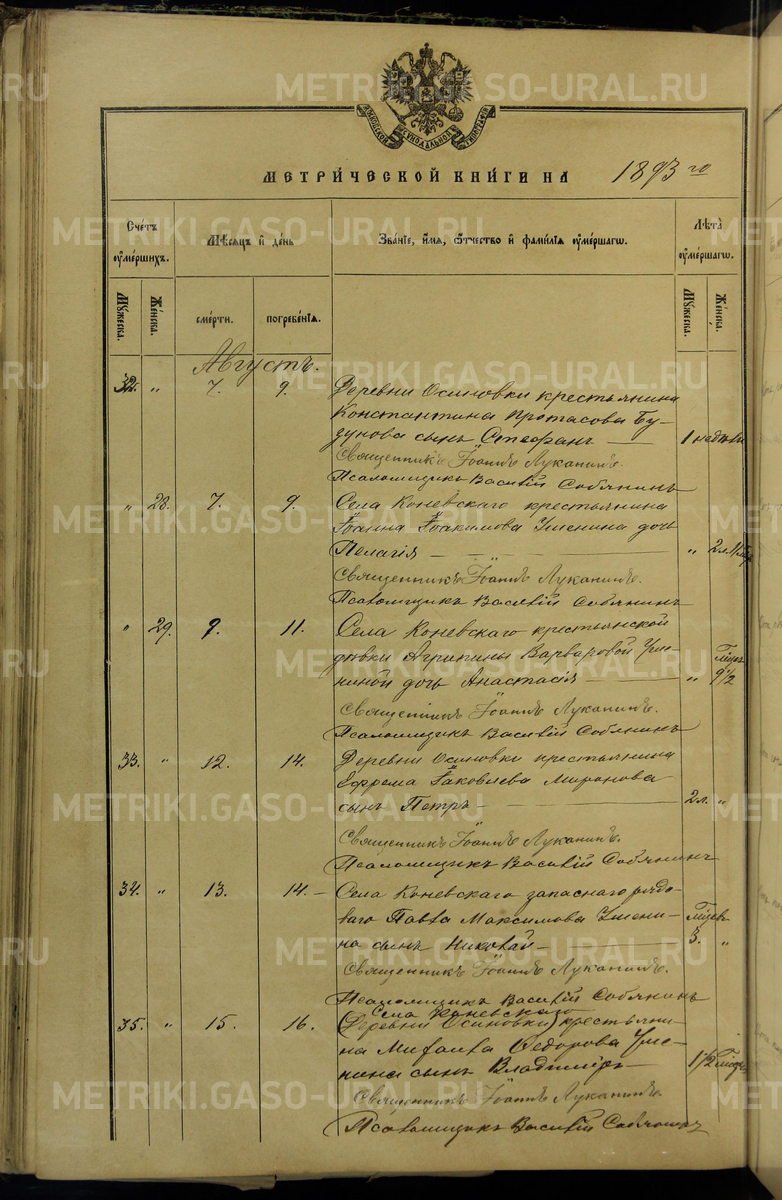 МЕТРИ́ЧЕСКОЙ КНИ́ГИ НА 1893 го
Сче́тъ ᲂу҆ме́ршихъ.
Мѣ́сяцъ и҆ де́нь
Зва́нїе, и҆́мя, ѻ҆́тчество и҆ фами́лїя ᲂу҆ме́ршагѡ.
Лѣ́та ᲂу҆ме́ршагѡ.
Мꙋ́жеска.
Же́нска.
сме́рти.
погребе́нїя.
Мꙋ́жеска.
Же́нска.
Августъ.
32. " 7. 9. Деревни Осиновки крестьянина
Константина Протасова Бу-
дунова сынъ Стефанъ — 1 недѣли
Священникъ Іоаннъ Луканинъ.
Псаломщикъ Василій Собянинъ
" 28. 7. 9. Села Коневскаго крестьянина
Іоанна Іоакимова Уменина дочь
Пелагія — " 2 л.
Священникъ Іоаннъ Луканинъ.
Псаломщикъ Василій Собянинъ
" 29. 9. 11. Села Коневскаго крестьянской
дѣвки Агрипины Варваровой Уме-
ниной дочь Анастасія — " 9 1/2
Священникъ Іоаннъ Луканинъ.
Псаломщикъ Василій Собянинъ
33. " 12. 14. Деревни Осиновки крестьянина
Ефрема Іаковлева Миронова
сынъ Петръ — 2 л. "
Священникъ Іоаннъ Луканинъ.
Псаломщикъ Василій Собянинъ
34. " 13. 14. – Села Коневскаго запаснаго рядо-
ваго Павла Максимова Умени-
на сынъ Николай — 3. "
Священникъ Іоаннъ Луканинъ.
Псаломщикъ Василій Собянинъ
Села Коневскаго
35. " 15. 16. (Деревни Осиновки) крестьяни-
на Михаила Ѳедорова Уме-
нина сынъ Владиміръ — 1 1/2
Священникъ Іоаннъ Луканинъ.
Псаломщикъ Василій Собянинъ
METRIKI.GASO-URAL.RU